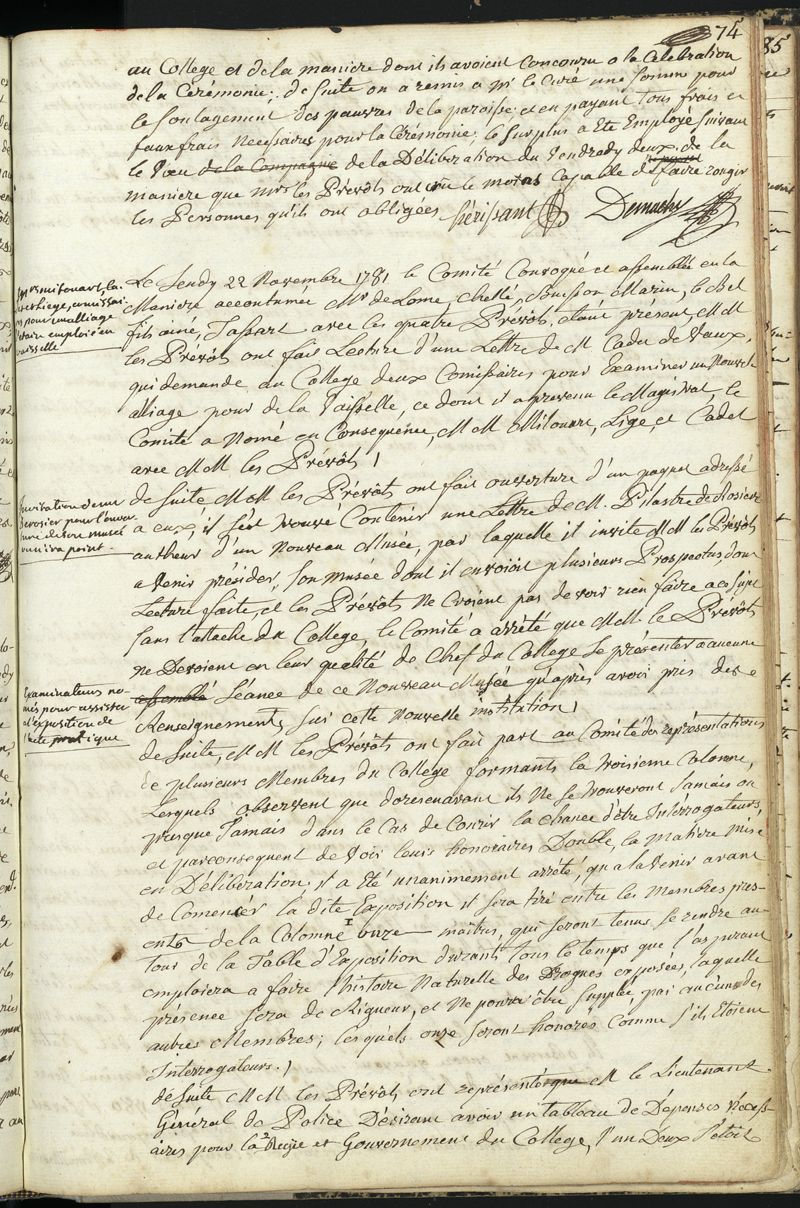 74
au College et de la maniere dont ils avoient Concouru a la Celebration
de la Cérémonie; de suite on a remis a Mr le Curé une somme pour
le soulagement des pauvres de la paroisse; et en payant tous frais et
faux frais Necessaires pour la Cérémonie, le surplus a Eté Employé suivant
le Vœu de la Compagnie de la Déliberation du Vendredy deux. de la
maniere que Mrs les Prévôts ont cru le moins Capable de faire rougir
les Personnes qu'ils ont obligées. Hérissant Demachy
Mrs mitouart, liege, commissai-
res pour un alliage
vaisselle
Le Jeudy 22 Novembre 1781 le Comité Convoqué et assemblée en la
Maniere accoutumée Mrs de Lorne, Chellé, Buisson Marin, le Bel
fils ainé, Tassart avec les quatre Prévôts, étant présent, MM
les Prévôts ont fait Lecture d'une Lettre de M Cadet de Vaux,
qui demande au College deux Comissaires pour Examiner un Nouvel
alliage pour de la Vaisselle, ce dont il a prevenu le Magistrat, le
Comité a Nomé en Consequence, MM Mitouart, Lige, et Cadet
avec MM les Prévôts /
Invitation de mr
de rosier pour l'ouver-
ture de son museé
on n'ira point.
de suite, MM les Prévôts ont fait ouverture d'un paquet adressé
a eux, il s'est trouvé Contenir une Lettre de M. Pilastre de Rosiere
autheur d'un Nouveau Musée, par laquelle il invite MM les Prévôts
a venir présider, son musée dont il envoioit plusieurs Prospectus, dont
Lecture faite, et les Prévôts Ne Croiant pas devoir rien faire a ce sujet
sans l'attache du College, le Comité a arrèté que MM. le Prévôts
Ne Devoient en leur qualité de Chef du College se présenter a aucune
assemblé Séance de ce Nouveau Musée qu'après avoir pris des
Renseignements sur cette Nouvelle institution /
Examinateurs no-
més pour assister
a l'exposition de
l'acte pratique
de suite, MM les Prévôts ont fait part au Comité des representations
de plusieurs Membres du College formants la troisieme Colomne,
Lesquels observent que doresenavant ils Ne se trouveront Jamais ou
presque Jamais dans le Cas de Courir la chance d'être Intérrogateurs,
et parconsequent de Voir leurs honoraires Double, la matiere mise
en Déliberation, il a Eté unanimement arreté, qu'a la Venir avant
de Comencer la dite Exposition il sera tiré entre les Membres pres-
ents de la Colomne onze maitres, qui seront tenus se rendre au-
tour de la Table d'Exposition durant tous le temps que l'aspirant
emploiera a faire l'histoire Naturelle des Drogues exposées, laquelle
présence sera de Rigueur, et Ne pourra être supplée, par aucun des
autres Membres; lesquels onze seront honorés comme s'ils Etoient
Interrogateurs. /
de suite MM les Prévôts ont représenté que M le Lieutenant
Général de Police Désirant avoir un tableau de Depenses Necess-
aires pour la Regie et Gouvernement du College, l'un Deux